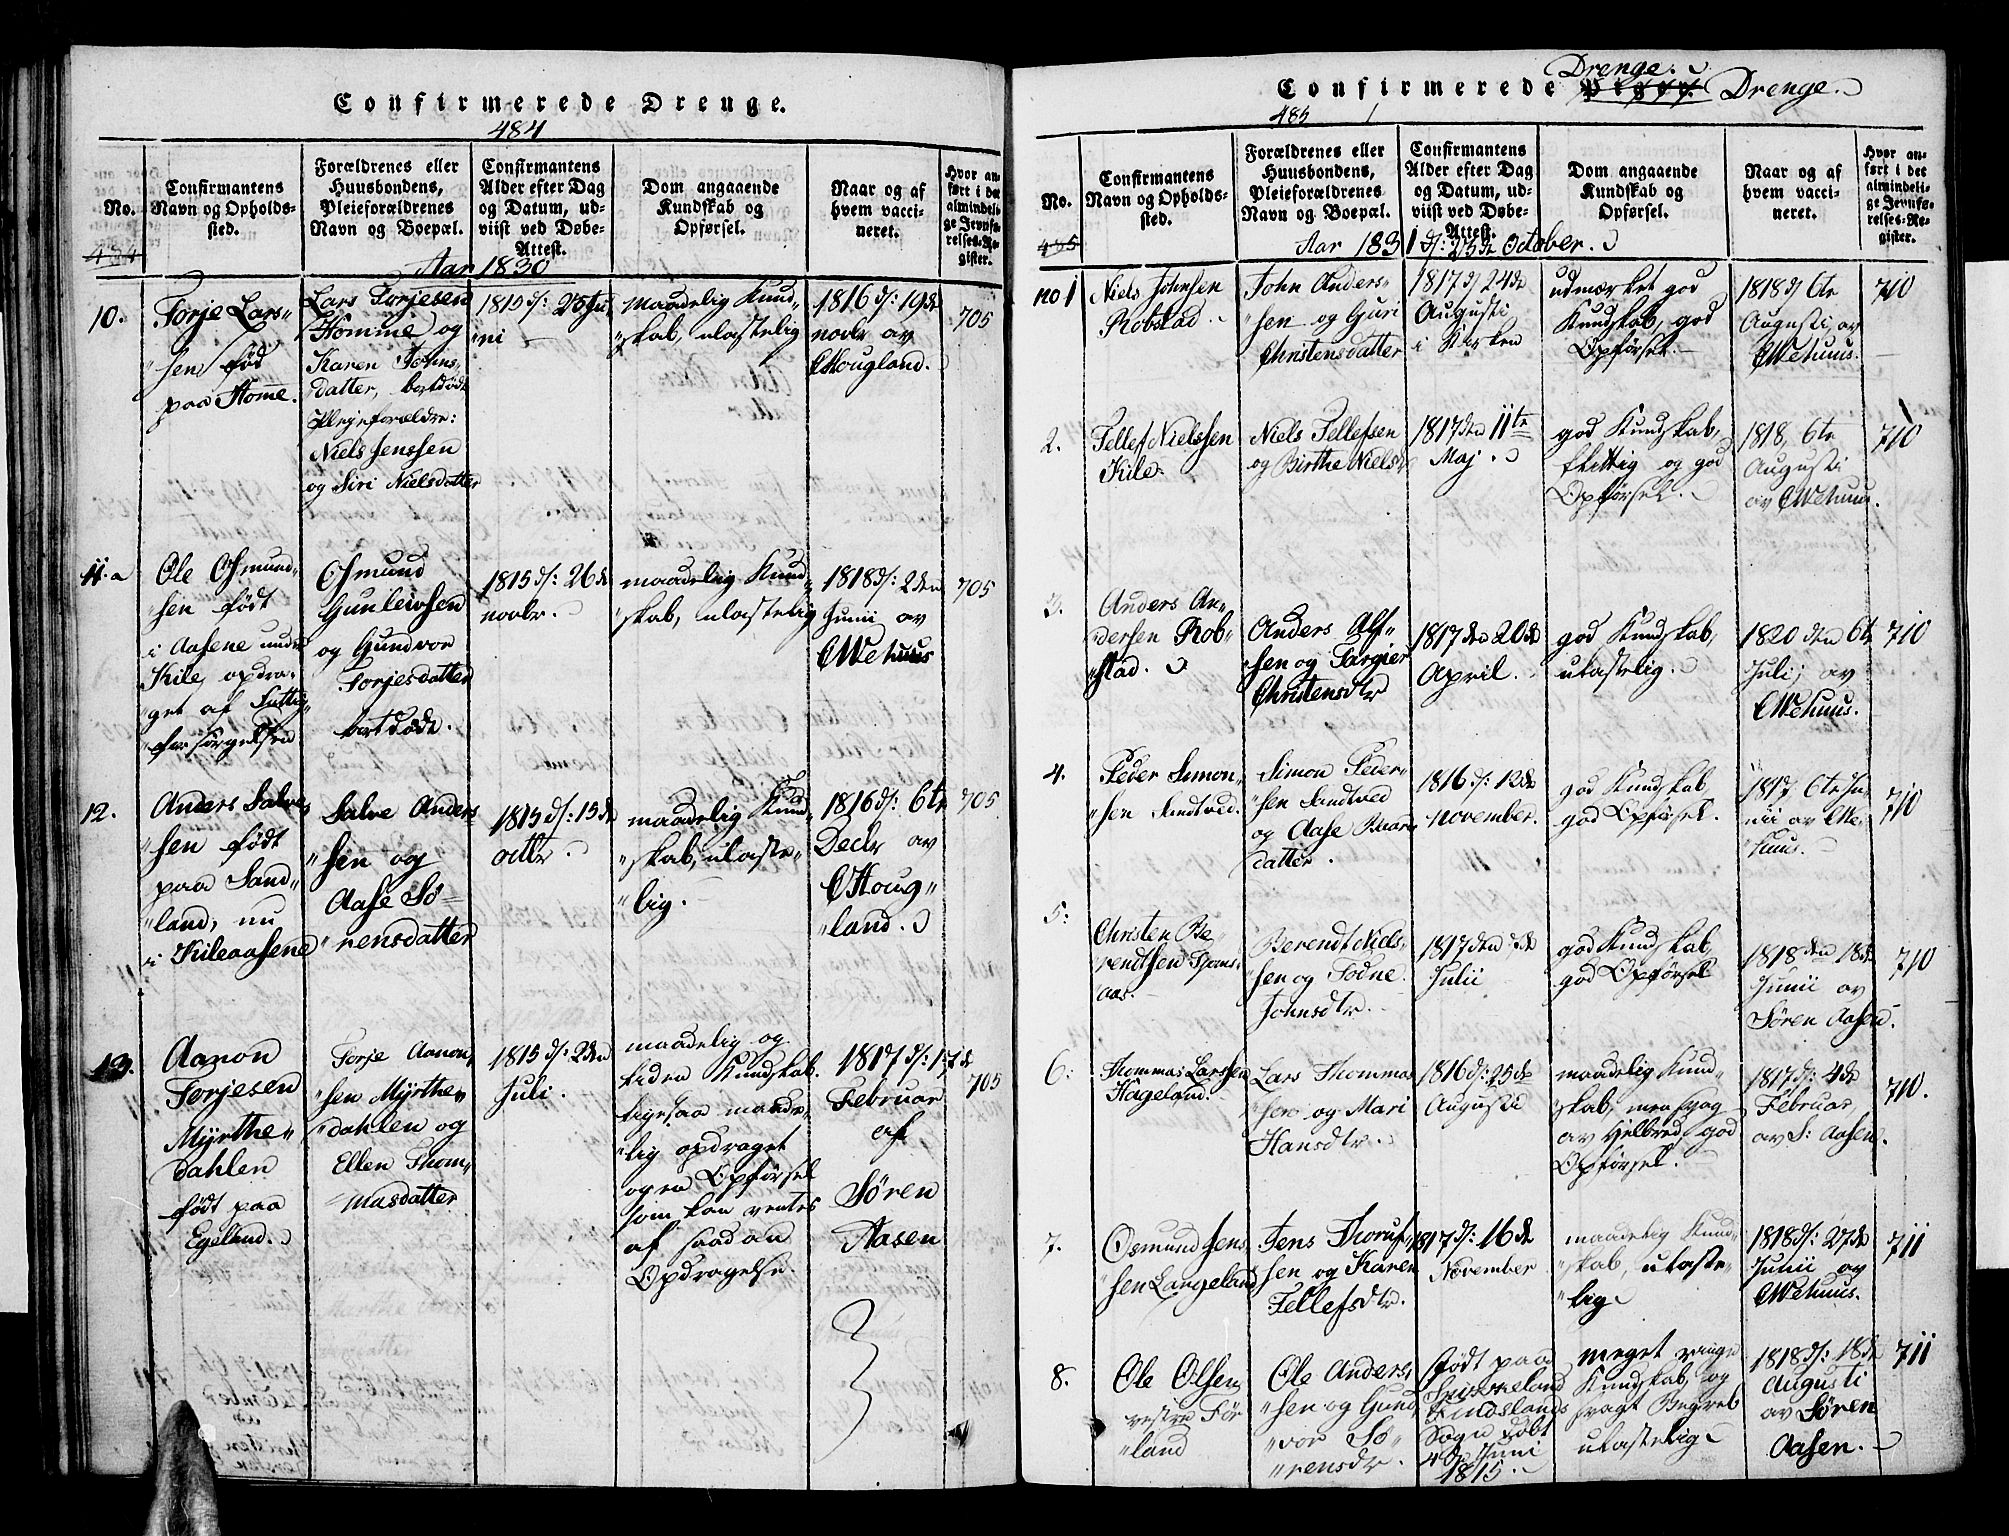 Confirmerede Drenge.
484
No.
Confirmantens
Navn og Opholds-
sted.
Forældrenes eller
Huusbondens,
Pleieforældrenes
Navn og Boepæl.
Confirmantens
Alder efter Dag
og Datum, ud-
viist ved Døbe-
Attest.
Dom angaaende
Kundskab og
Opførsel.
Naar og af
hvem vacci-
neret.
Hvor an-
ført i det
almindeli-
ge Jevnfø-
relses-Re-
gister.
484
Aar 1830
10.
Torje Lars-
sen fød
paa Homme.
Lars Torjesen
Homme og
Karen Johns-
datter, bortdøde
Plejeforældre:
Niels Jenssen
og Siri Nielsdatter
1815 d: 25 Ju-
ni
maadelig Kund-
skab, ulastelig
1816 d: 19de
novbr av
CHougland.
705
11.
Ole Osmund-
sen født
i Aasene under
Kile, opdra-
get af Fattig-
forsørgelsen
Osmund
Gunleivsen
og Gundvor
Torjesdatter
bortdøde.
1815 d: 26de
novbr.
maadelig Kund-
skab, ulastelig
1818 d: 2den
Junii av
CWehuus
705
12.
Anders Salve-
sen født
paa Sand-
land, nu
i Kileaasene
Salve Anders-
sen og
Aase Sø-
rensdatter
1815 d: 15de
octbr.
maadelig Kund-
skab, ulaste-
lig.
1816 d: 6te
Decbr av
CHoug-
land.
705
13.
Aanon
Torjesen
Myrthe-
dahlen
født paa
Egeland.
Torje Aanon-
sen Myrthe-
dahlen og
Ellen Thom-
masdatter
1815 d: 2den
Juli.
maadelig og
liden Kundskab.
ligesaa maade-
lig opdraget
og en Opførsel
som kan ventes
af saadan
Opdragelse.
1817 d: 17de
Februar
af
Søren
Aasen
705
Confirmerede Piger. Drenge.
Drenge.
485
No.
Confirmantens
Navn og Opholds-
sted.
Forældrenes eller
Huusbondens,
Pleieforældrenes
Navn og Boepæl.
Confirmantens
Alder efter Dag
og Datum, ud-
viist ved Døbe-
Attest.
Dom angaaende
Kundskab og
Opførsel.
Naar og af
hvem vacci-
neret.
Hvor an-
ført i det
almindeli-
ge Jevnfø-
relses-Re-
gister.
485
Aar 1831 d: 23de October.
no 1
Niels Johnsen
Robstad
John Anders-
sen og Guri
Christensdatter
1817 d 24de
Augusti
i Kirken
udmerket god
Kundskab, god
Opførsel.
1818 d 6te
Augusti, av
CWehuus.
710
2.
Tellef Nielssen
Kile.
Niels Tellefsen
og Birthe Nielsd
1817 den 11te
Maj.
god Kundskab,
flittig og god
Opførsel.
1818, 6te
Augusti
av CWehuus.
710
3.
Anders An-
dersen Rob-
stad.
Anders Alf-
sen og Targier
Christensdtr
1817 den 20de
April.
god Kundskab,
ulastelig.
1820 den 6te
Juli, av
CWehuus.
710
4.
Peder Simon-
sen Sandtved.
Simon Peder-
sen Sandtved
og Aase
datter.
1816 d: 12de
November.
god Kundskab,
god Opførsel.
1817 6te Ju-
nii av CWe-
huus.
710
5:
Christen Be-
rendtsen
aas.
Berendt Niels-
sen og Todne
Johnsdtr.
1817 den de
Julii
god Kundskab,
god Opførsel
1818 den 18de
Junii av
Søren Aasen.
710
6:
Thommas Larssen
Hageland.
Lars Thommas-
sen og Mari
Hansdtr.
1816 d: 25de
Augusti
maadelig Kund-
skab, men svag
av Helbred, god
Opførsel.
1817 d: 4de
Februar,
av S: Aasen.
710.
7.
Osmund Jens-
sen Langeland
Jens Thoruf-
sen og Karen
Tellefsdtr.
1817 d: 16de
November
maadelig Kund-
skab, ulaste-
lig.
1818 d: 27de
Julii av
CWehuus.
711
8.
Ole Olsen
vestre Før-
land
Ole Anders-
sen og Gund-
vor Sø-
rensdtr.
født paa
Findslands
Sogn døbt
4de Juni
1815.
meget ringe
Kundskab, og
svagt Begreb
ulastelig
1818 d: 18de
Augusti
av Søren
Aasen.
711